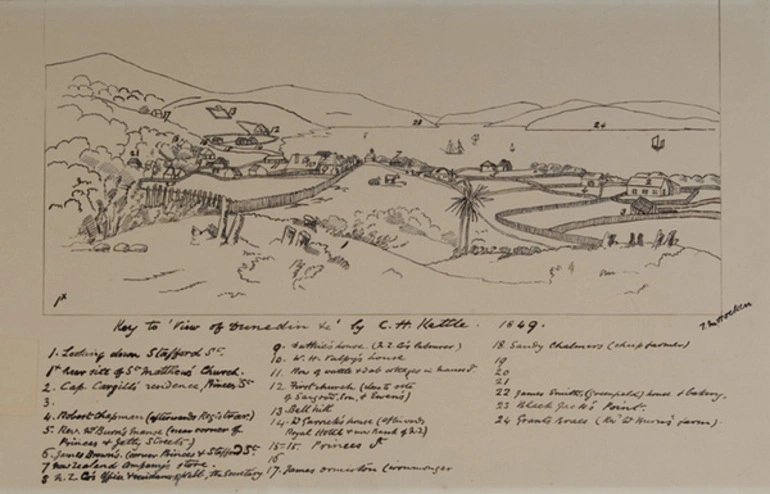 Key to 'View of Dunedin &c' by C. H. Kettle. 1849.
T. M. Hocken
1. Looking down Stafford St.
1x near site of St. Matthew's Church.
2. Cap. Cargill's residence, Princes St
3.
4. Robert Chapman (afterwards Registrar.)
5. Rev. Mr Burn's manse (near corner of
Princes & Jetty Streets)
6. James Brown's. (corner Princes & Stafford St.
7 New Zealand Company's store.
8 N. Z. Co's Office & residence of Webb, the Secretary
9. Duthie's house (N. Z. Co's labourer)
10. W. H. Valpy's house
11. Row of wattle & dab cottages in
12. First church (close to site
of Sargood, Son, & Ewen's)
13. Bell hill
14. Garrick's house (afterwards
Royal Hotel & now Bank of N.Z)
15-15. Princes St
16
17. James Ormiston (ironmonger
18 Sandy Chalmers (sheep farmer)
19
20
21
22 James Smith, (Greenfield) house & bakery.
23 Black Jack's Point.
24 Grants Braes (Rev Burns's farm).
1x
1
2
12
13
17
23
24